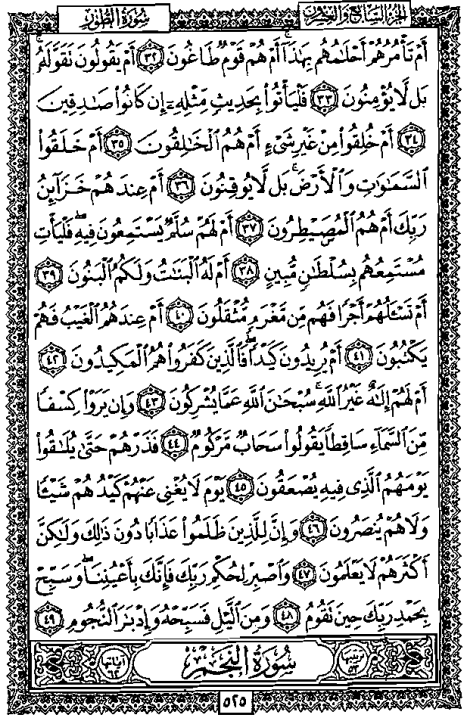 سُورَةُ الطُّورِ الجزء السابع والعشرون
أَمْ تَأْمُرُهُمْ أَحْلَٰمُهُم بِهَٰذَآ أَمْ هُمْ قَوْمٌ طَاغُونَ ٣٢ أَمْ يَقُولُونَ تَقَوَّلَهُۥ
بَل لَّا يُؤْمِنُونَ ٣٣ فَلْيَأْتُوا۟ بِحَدِيثٍ مِّثْلِهِۦٓ إِن كَانُوا۟ صَٰدِقِينَ
٣٤ أَمْ خُلِقُوا۟ مِنْ غَيْرِ شَىْءٍ أَمْ هُمُ ٱلْخَٰلِقُونَ ٣٥ أَمْ خَلَقُوا۟
ٱلسَّمَٰوَٰتِ وَٱلْأَرْضَ ۚ بَل لَّا يُوقِنُونَ ٣٦ أَمْ عِندَهُمْ خَزَآئِنُ
رَبِّكَ أَمْ هُمُ ٱلْمُصَۣيْطِرُونَ ٣٧ أَمْ لَهُمْ سُلَّمٌ يَسْتَمِعُونَ فِيهِ ۖ فَلْيَأْتِ
مُسْتَمِعُهُم بِسُلْطَٰنٍ مُّبِينٍ ٣٨ أَمْ لَهُ ٱلْبَنَٰتُ وَلَكُمُ ٱلْبَنُونَ ٣٩
أَمْ تَسْـَٔلُهُمْ أَجْرًا فَهُم مِّن مَّغْرَمٍ مُّثْقَلُونَ ٤٠ أَمْ عِندَهُمُ ٱلْغَيْبُ فَهُمْ
يَكْتُبُونَ ٤١ أَمْ يُرِيدُونَ كَيْدًا ۖ فَٱلَّذِينَ كَفَرُوا۟ هُمُ ٱلْمَكِيدُونَ ٤٢
أَمْ لَهُمْ إِلَٰهٌ غَيْرُ ٱللَّهِ ۚ سُبْحَٰنَ ٱللَّهِ عَمَّا يُشْرِكُونَ ٤٣ وَإِن يَرَوْا۟ كِسْفًا
مِّنَ ٱلسَّمَآءِ سَاقِطًا يَقُولُوا۟ سَحَابٌ مَّرْكُومٌ ٤٤ فَذَرْهُمْ حَتَّىٰ يُلَٰقُوا۟
يَوْمَهُمُ ٱلَّذِى فِيهِ يُصْعَقُونَ ٤٥ يَوْمَ لَا يُغْنِى عَنْهُمْ كَيْدُهُمْ شَيْـًٔا
وَلَا هُمْ يُنصَرُونَ ٤٦ وَإِنَّ لِلَّذِينَ ظَلَمُوا۟ عَذَابًا دُونَ ذَٰلِكَ وَلَٰكِنَّ
أَكْثَرَهُمْ لَا يَعْلَمُونَ ٤٧ وَٱصْبِرْ لِحُكْمِ رَبِّكَ فَإِنَّكَ بِأَعْيُنِنَا ۖ وَسَبِّحْ
بِحَمْدِ رَبِّكَ حِينَ تَقُومُ ٤٨ وَمِنَ ٱلَّيْلِ فَسَبِّحْهُ وَإِدْبَٰرَ ٱلنُّجُومِ ٤٩
ترتيبها ٥٣ سُورَةُ النَّجْمِ آياتها ٦٢
٥٢٥